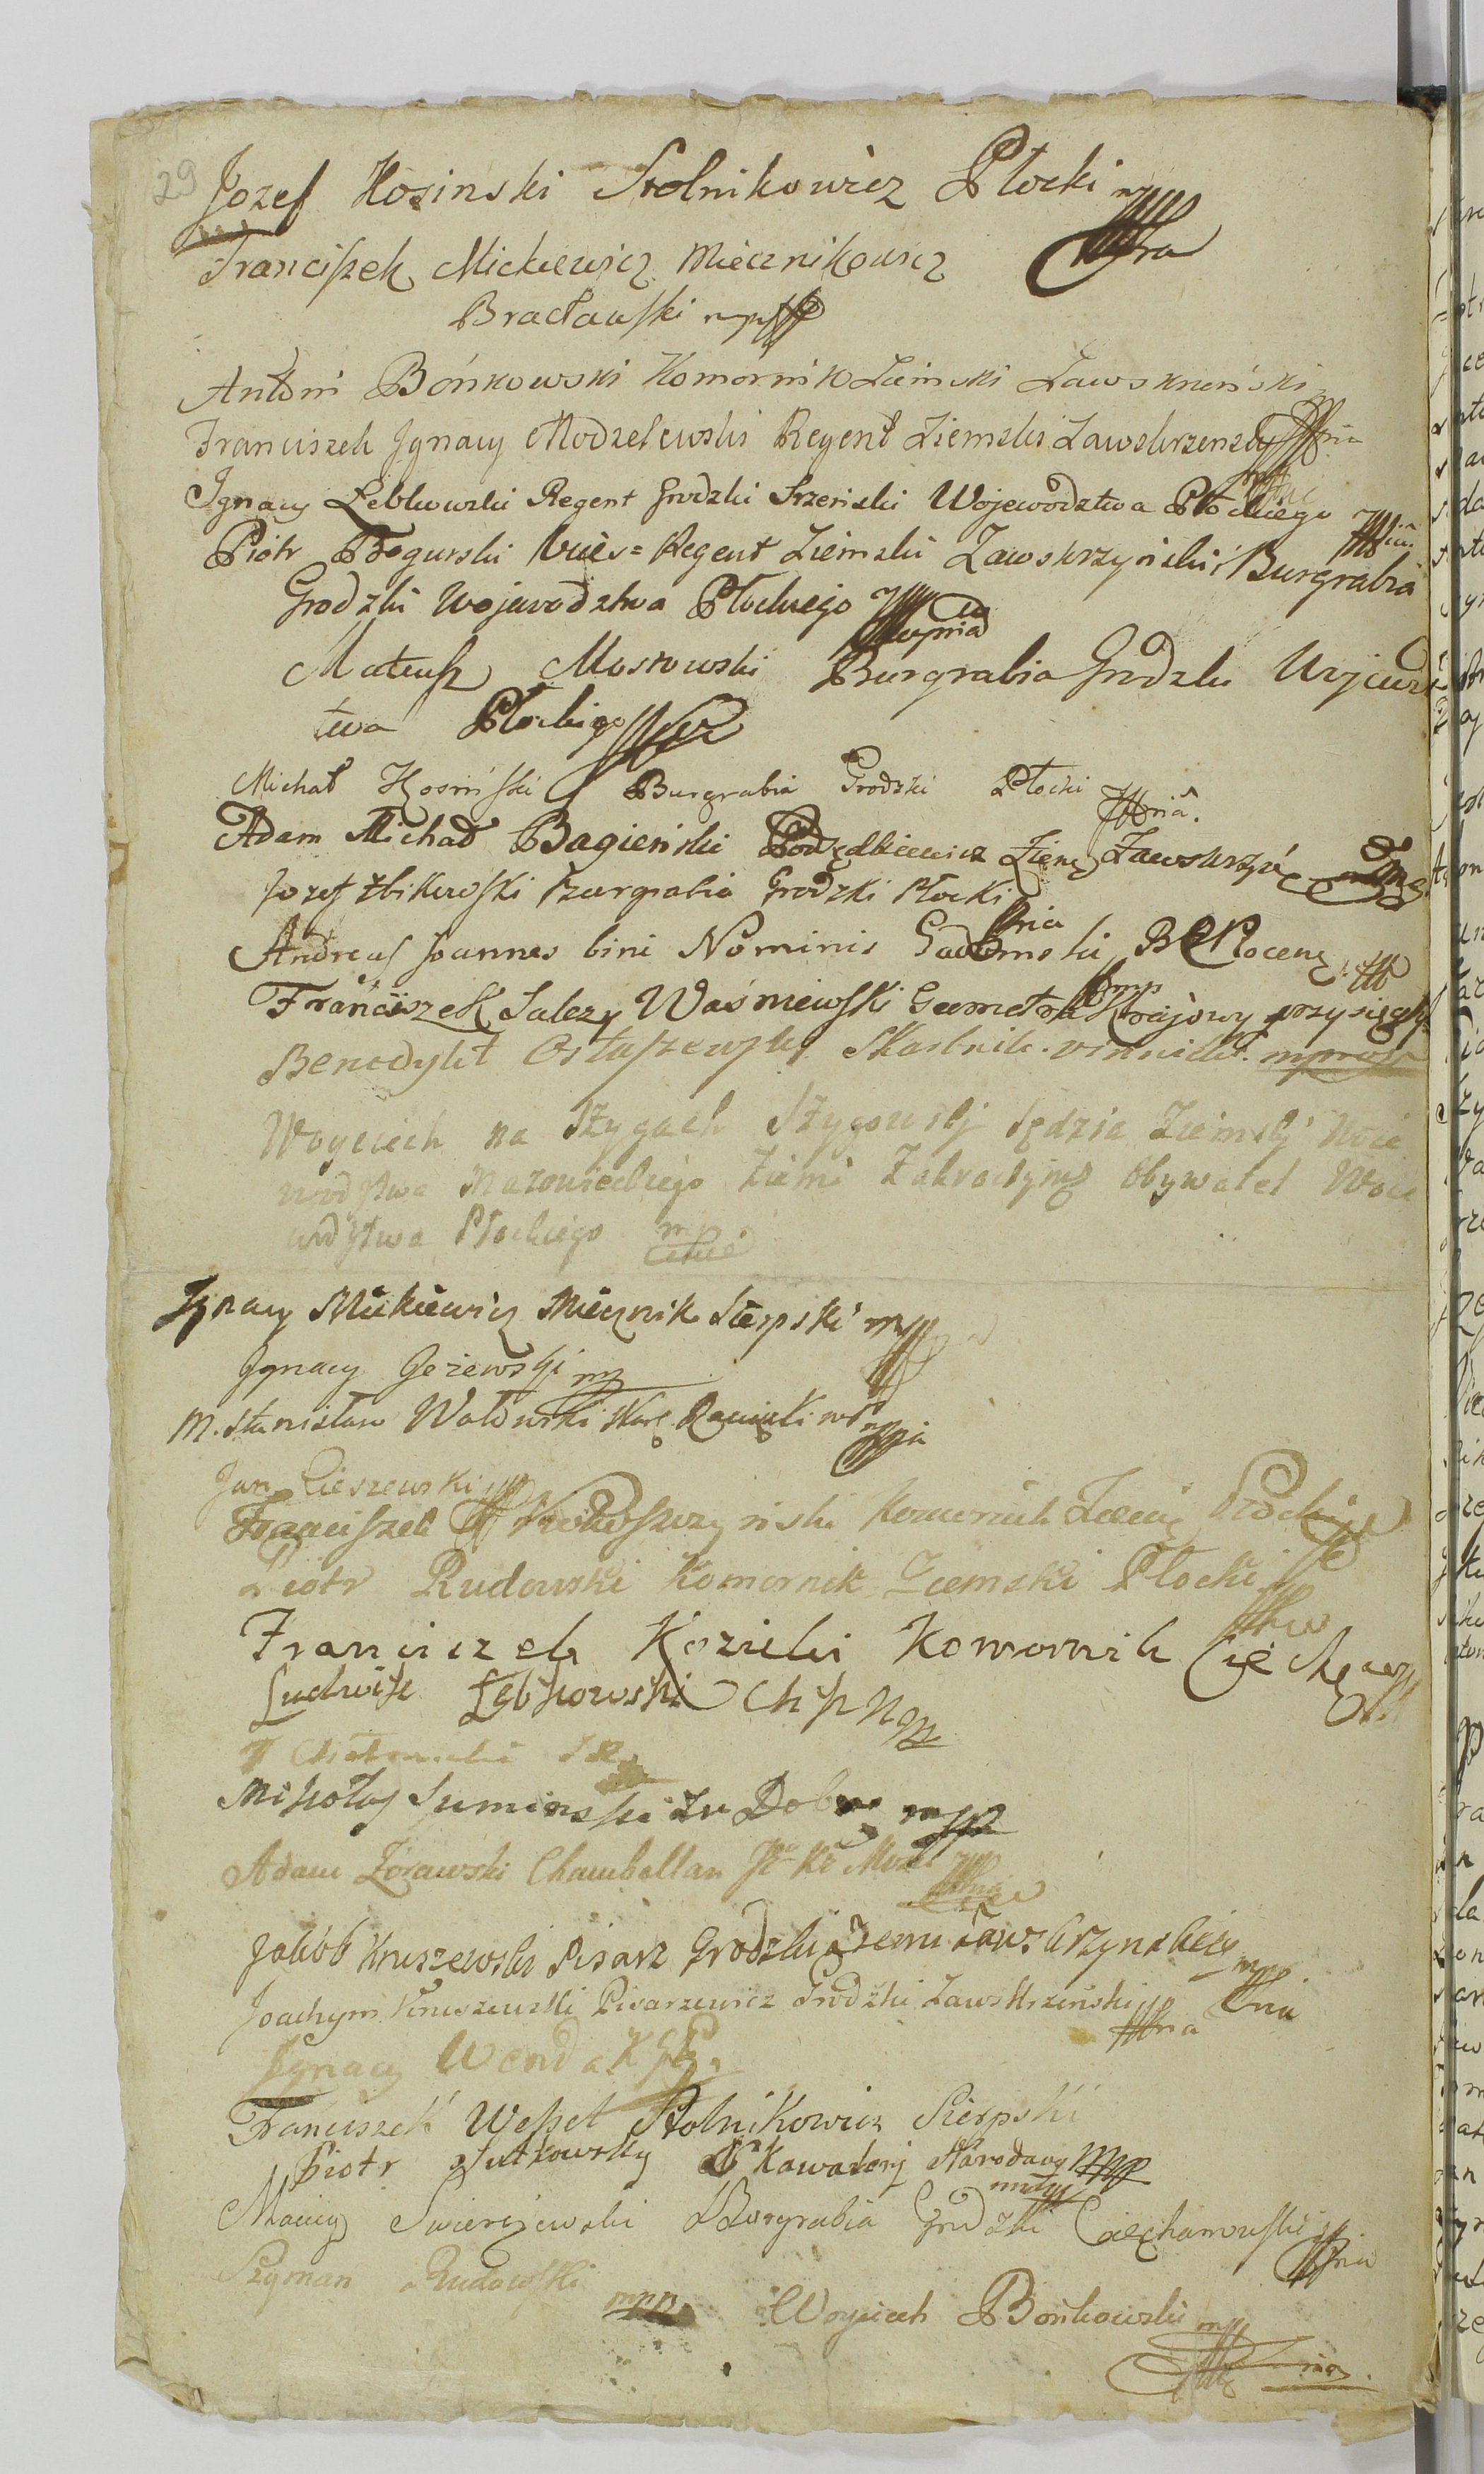 29
Jozef Kosinski Stolnikowicz Płocki mp
Franciszek Mickiewicz Miecznikowicz
Bracławski mp
Antoni Bońkowski Komornik Ziemski Zawskrzeński
Franciszek Jgnacy Modzelewski Regent Ziemski Zawskrzenski
Jgnacy Łebkowski Regent Grodzki Srzeński Wojewodztwa Płockiego
Piotr Bogurski Vices=Regent Ziemski Zawskrzyński, Burgrabia
Grodzki Wojewodztwa Płockiego
Mateusz Mostowski Burgrabia Grodzki
twa Płockiego
Michał Kosiński Burgrabia Grodzki Płocki
Adam Michał Bagieński Ziems Zawskrzyń
Jozef Zbikowski Burgrabia Grodzki Płocki
Andreas Joannes bini Nominis Gadomski
Franciszek Salezy Waśniewski Geometra Krajowy przysięgły
Benedykt Ostaszewski Skarbnik
Woyciech na Stzygach Sędzia Ziemski Woie
wodstwa Mazowieckiego Ziemi Zakroczyms Obywatel Woie
wodztwa Płockiego mp
Jgnacy Mickiewicz Miecznik Sierpski mp
Jgnacy Jeżewski mp
M. Stanisław Wołowski
Jan Cieszewski
Franciszek Komornik Ziems Płocki
Piotr Rudowski Komornik Ziemski Płocki
Franciszek Kozicki Komornik Ciecha
Ludwik Łębkowski
Mikołaj Suminski Dobr
Adam Zórawski Chambellan
Jakób Kruszewski Pisarz Grodzki Ziemi Zawskrzynskiey
Joachym Kruszewski Pisarzewicz Grodzki Zawskrzeński
Jgnacy Wenda
Franciszek Wessel Stolnikowicz Sierpski
Piotr Kawalerij Narodowy mp
Maciey Swierczewski Burgrabia Grodzki Ciechanowski
Szyman Rudowski mpp
Woyciech Bońkowski mp